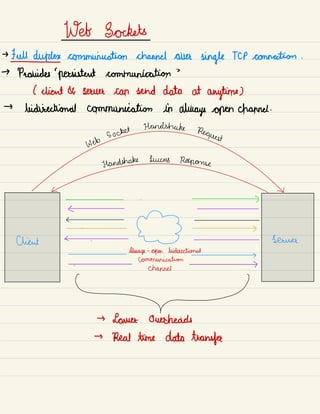 Web Sockets
→ Full duplex communication channel over single TCP connection.
→ Provides 'persistent communication'
( client & server can send data at anytime)
→ bidirectional communication in always open channel.
Web Socket Handshake Request
Handshake Success Response
Client
Server
Always-open bidirectional
Communication
channel
→ Lower Overheads
→ Real time data transfer